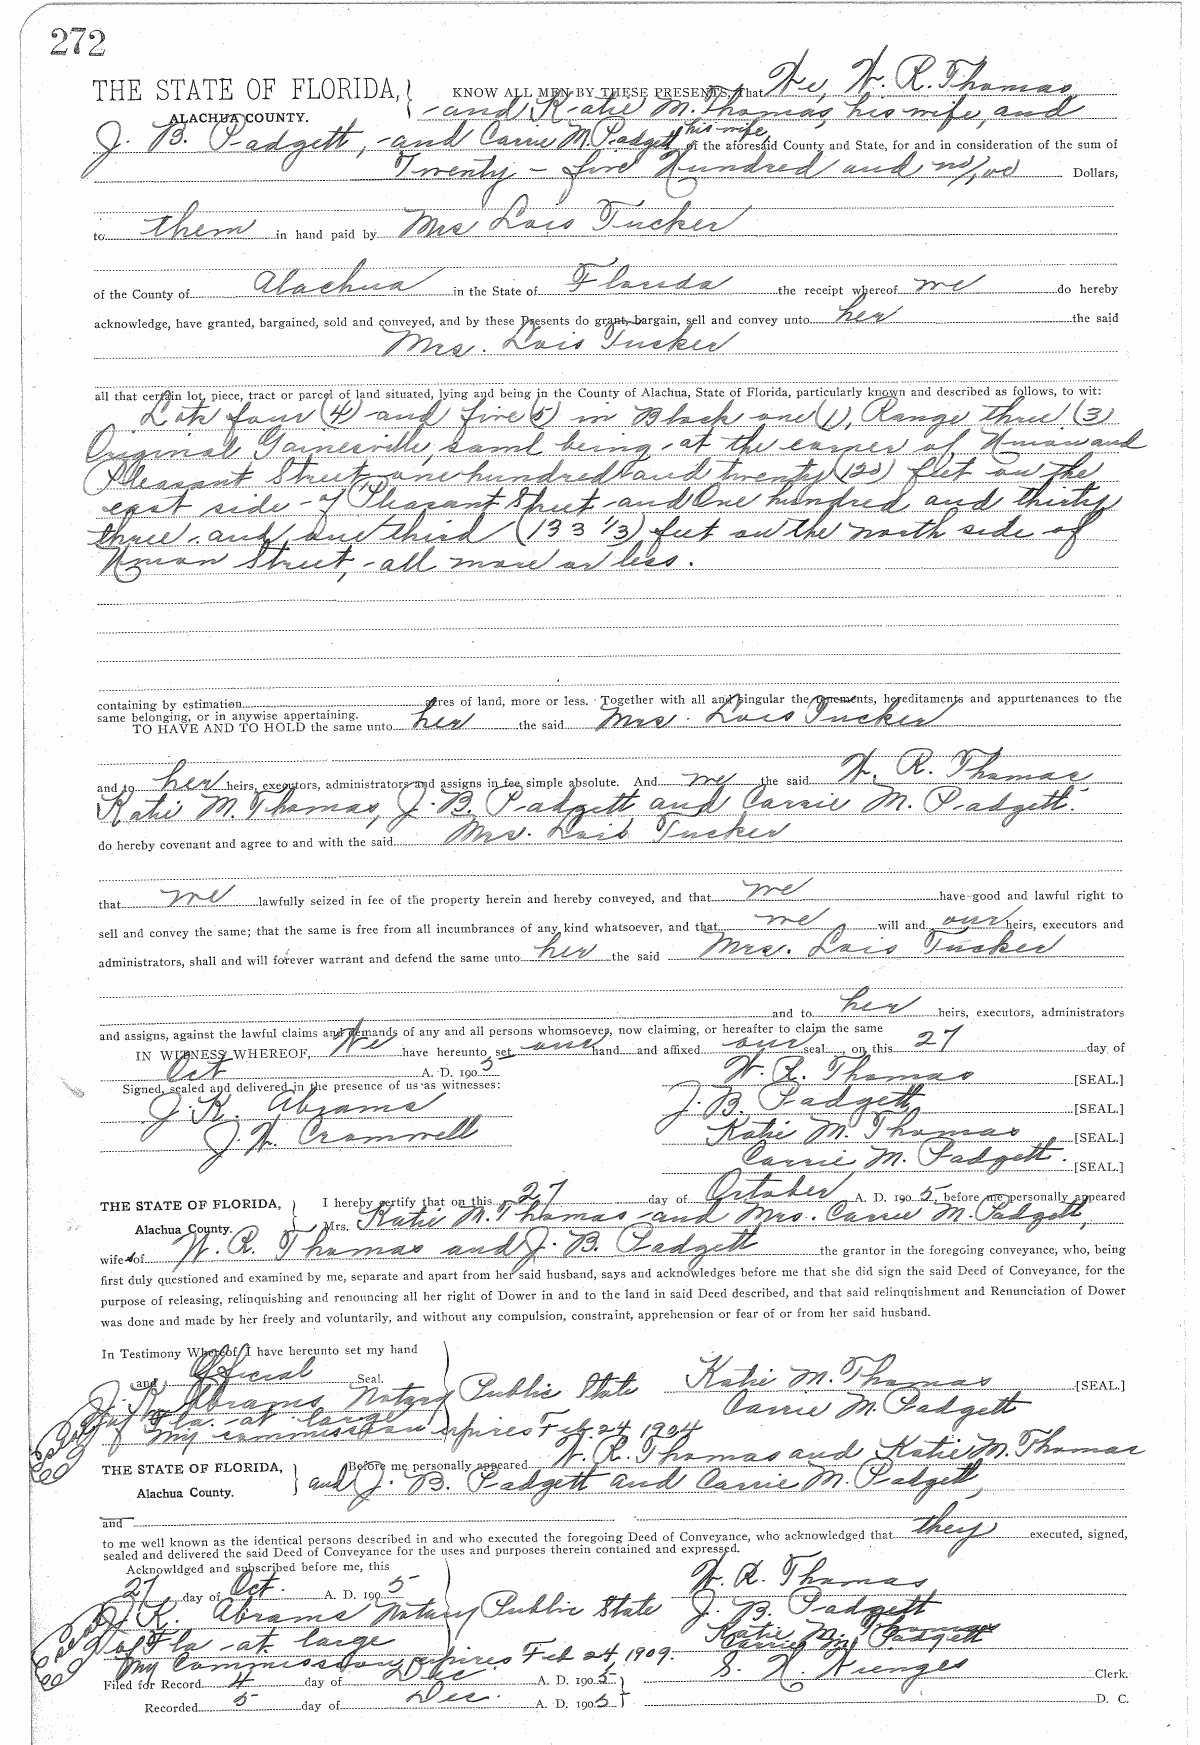 272
THE STATE OF FLORIDA, KNOW ALL MEN BY THESE PRESENTS, That We, W. R. Thomas
ALACHUA COUNTY. and Katie M. Thomas, his wife, and
J. B. Padgett, and Carrie M. Padgett his wife, of the aforesaid County and State, for and in consideration of the sum of
Twenty-five Hundred and no/100 Dollars,
to them in hand paid by Mrs Lois Tucker
of the County of Alachua in the State of Florida the receipt whereof we do hereby
acknowledge, have granted, bargained, sold and conveyed, and by these Presents do grant, bargain, sell and convey unto her the said
Mrs. Lois Tucker
all that certain lot, piece, tract or parcel of land situated, lying and being in the County of Alachua, State of Florida, particularly known and described as follows, to wit:
Lots four (4) and five (5) in Block one (1), Range three (3)
Original Gainesville, same being at the corner of Union and
Pleasant Street, one hundred and twenty (120) feet on the
east side of Pleasant Street and One hundred and thirty
three and one third (133 1/3) feet on the north side of
Union Street, all more or less.
containing by estimation acres of land, more or less. Together with all and singular the tenements, hereditaments and appurtenances to the
same belonging, or in anywise appertaining.
TO HAVE AND TO HOLD the same unto her the said Mrs. Lois Tucker
and to her heirs, executors, administrators and assigns in fee simple absolute. And we the said W. R. Thomas
Katie M. Thomas, J. B. Padgett and Carrie M. Padgett.
do hereby covenant and agree to and with the said Mrs. Lois Tucker
that we lawfully seized in fee of the property herein and hereby conveyed, and that we have good and lawful right to
sell and convey the same; that the same is free from all incumbrances of any kind whatsoever, and that we will and our heirs, executors and
administrators, shall and will forever warrant and defend the same unto her the said Mrs. Lois Tucker
and to her heirs, executors, administrators
and assigns, against the lawful claims and demands of any and all persons whomsoever, now claiming, or hereafter to claim the same
IN WITNESS WHEREOF, We have hereunto set our hand and affixed our seal, on this 27 day of
Oct A. D. 1905 W. R. Thomas [SEAL.]
Signed, sealed and delivered in the presence of us as witnesses:
J. K. Abrams J. B. Padgett [SEAL.]
J. W. Cromwell Katie M. Thomas [SEAL.]
Carrie M. Padgett. [SEAL.]
THE STATE OF FLORIDA, I hereby certify that on this 27 day of October A. D. 1905, before me personally appeared
Alachua County. Mrs. Katie M. Thomas and Mrs. Carrie M. Padgett,
wife of W. R. Thomas and J. B. Padgett the grantor in the foregoing conveyance, who, being
first duly questioned and examined by me, separate and apart from her said husband, says and acknowledges before me that she did sign the said Deed of Conveyance, for the
purpose of releasing, relinquishing and renouncing all her right of Dower in and to the land in said Deed described, and that said relinquishment and Renunciation of Dower
was done and made by her freely and voluntarily, and without any compulsion, constraint, apprehension or fear of or from her said husband.
In Testimony Whereof, I have hereunto set my hand
and Official Seal. Katie M. Thomas [SEAL.]
J. K. Abrams Notary Public State Carrie M. Padgett
of Fla. at large
My commission expires Feb 24 1904
W. R. Thomas and Katie M. Thomas
THE STATE OF FLORIDA, Before me personally appeared
Alachua County. and J. B. Padgett and Carrie M. Padgett,
and
to me well known as the identical persons described in and who executed the foregoing Deed of Conveyance, who acknowledged that they executed, signed,
sealed and delivered the said Deed of Conveyance for the uses and purposes therein contained and expressed.
Acknowldged and subscribed before me, this
27 day of Oct. A. D. 1905 W. R. Thomas
J. K. Abrams Notary Public State J. B. Padgett
of Fla at large Katie M. Thomas
Carrie M. Padgett
My Commission expires Feb 24, 1909.
Filed for Record 4 day of Dec A. D. 1905 S. H. Wienges Clerk.
Recorded 5 day of Dec. A. D. 1905 D. C.